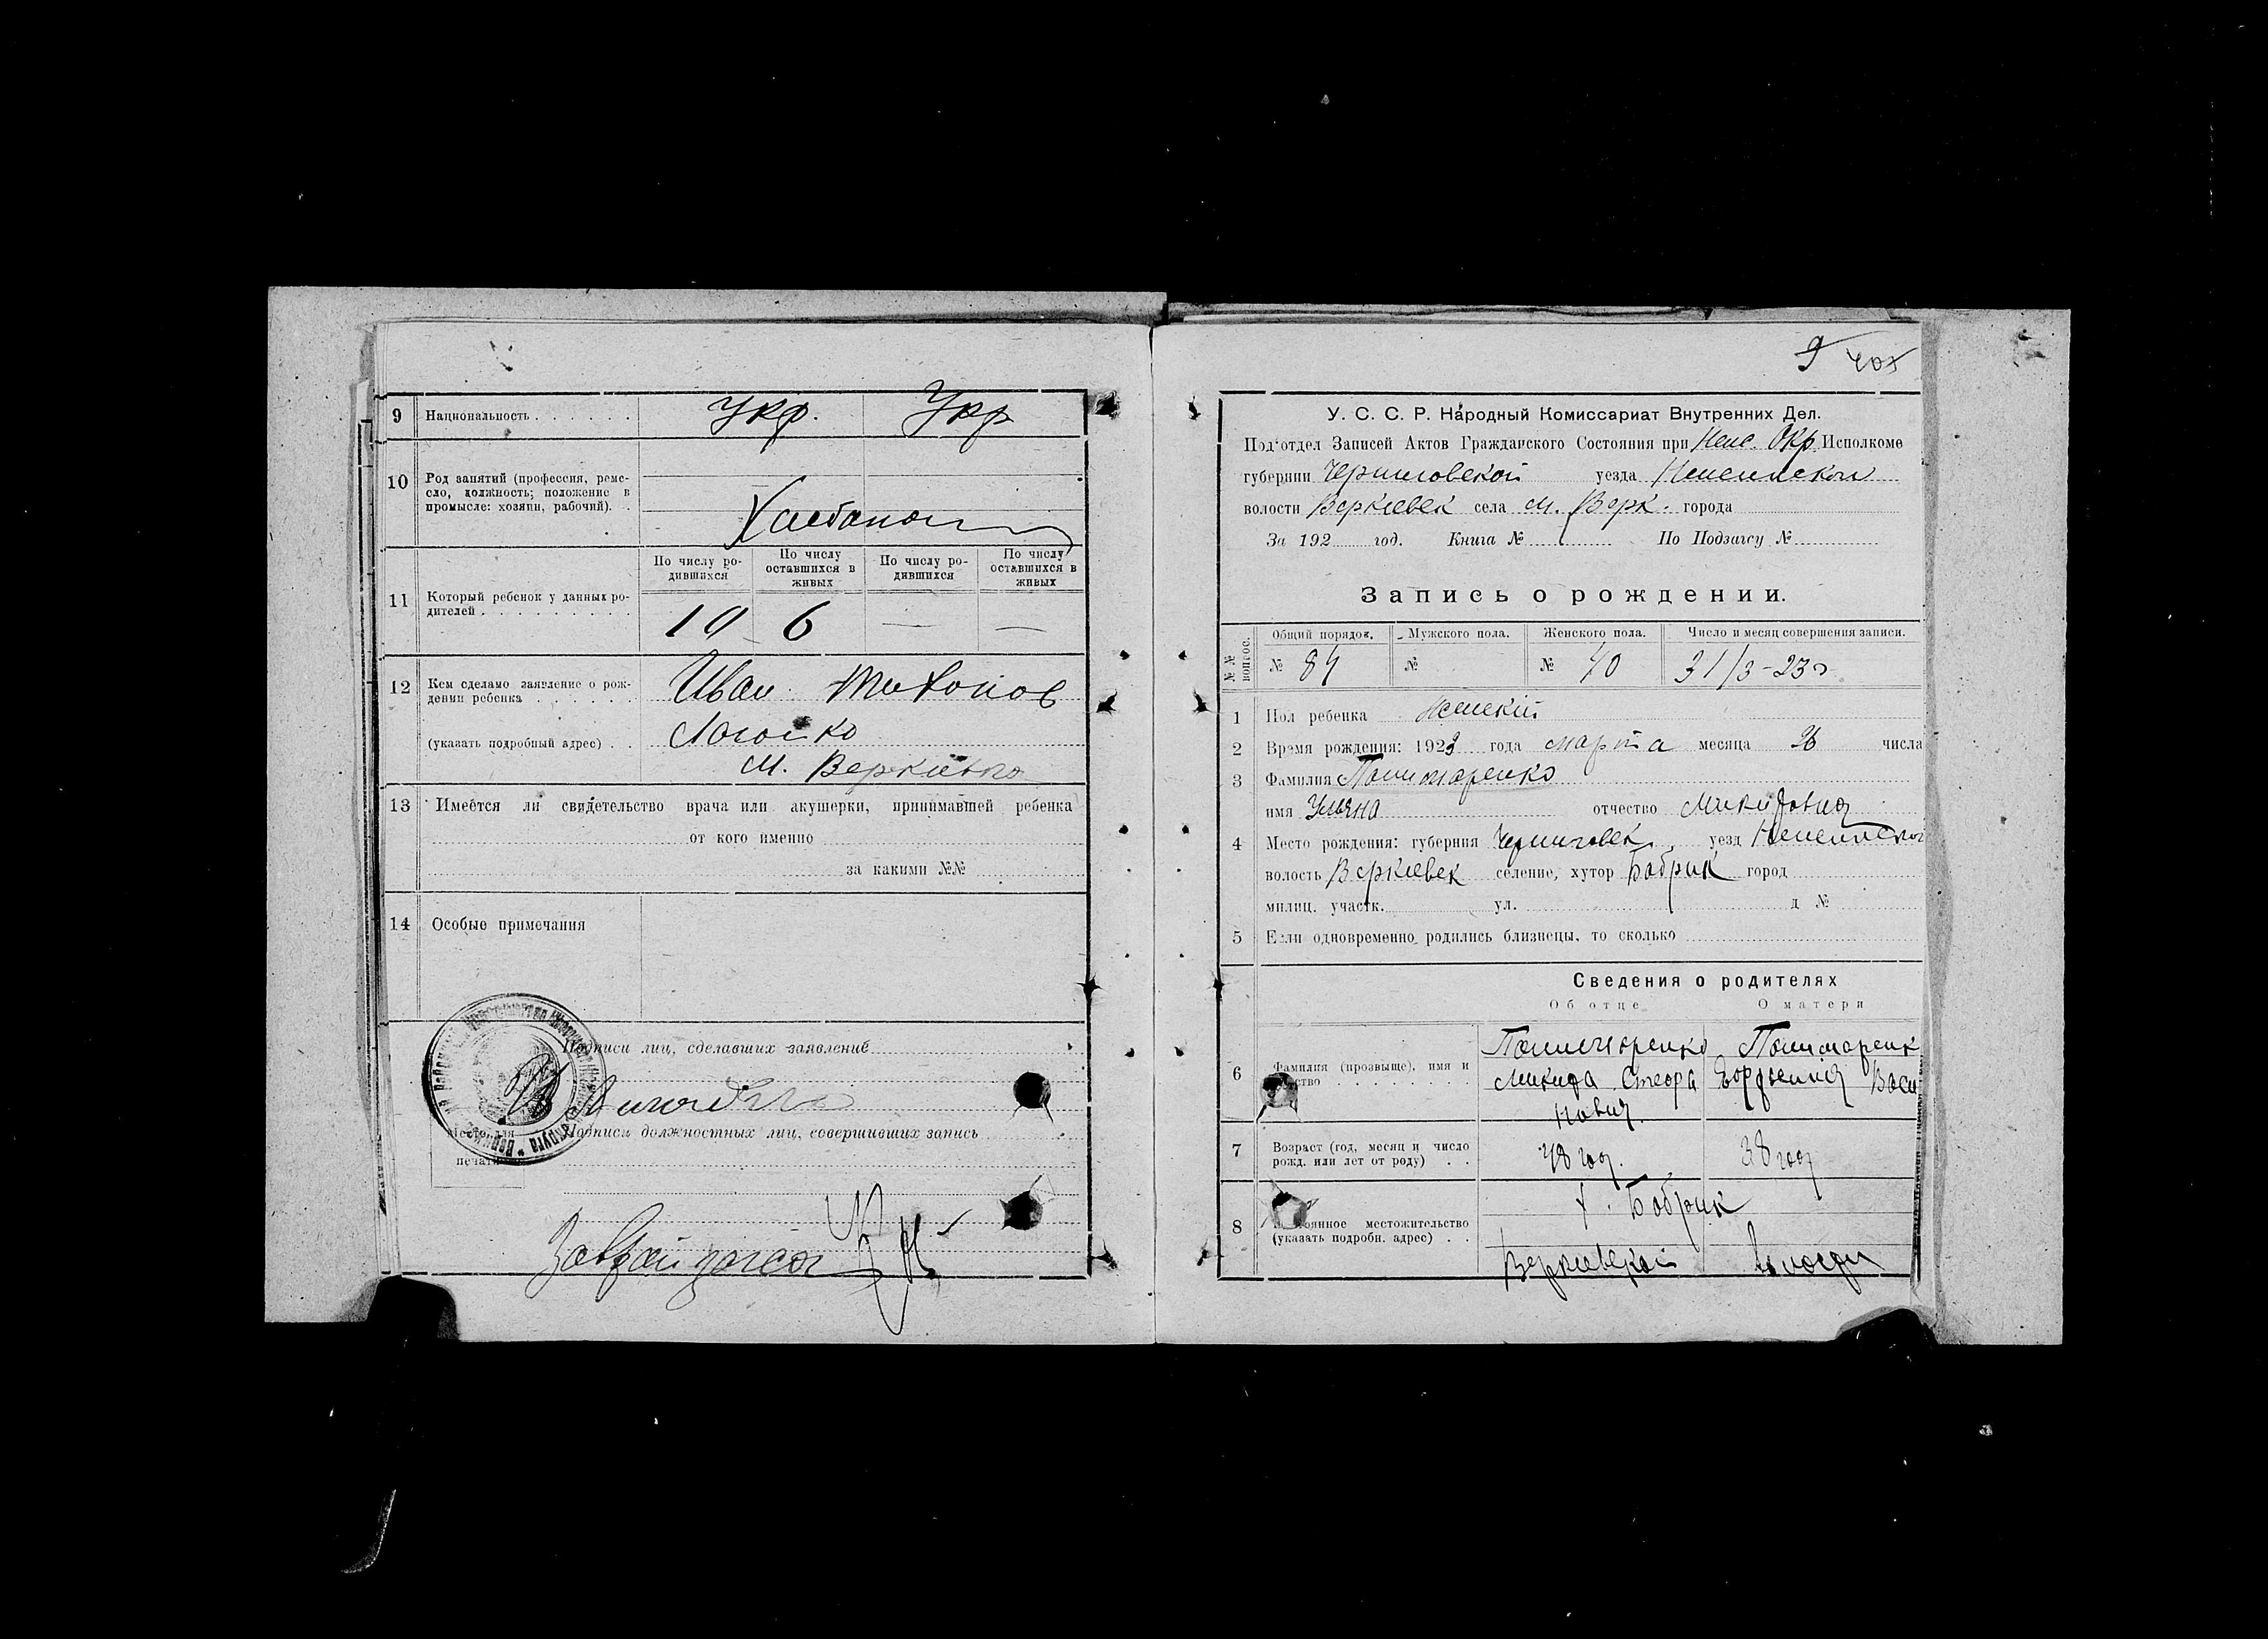 9 Национальность . . . . . . Укр. Укр
10 Род занятий (профессия, реме-
сло, должность; положение в
промысле: хозяин, рабочий). .
По числу ро-
дившихся
По числу
оставшихся в
живых
По числу ро-
дившихся
По числу
оставшихся в
живых
11 Который ребенок у данных ро-
дителей . . . . . . . . . .
10 6 — —
12 Кем сделано заявление о рож-
дении ребенка . . . . . .
Иван Тихонов
(указать подробный адрес) . .
м. Веркиевка
13 Имеется ли свидетельство врача или акушерки, принимавшей ребенка
от кого именно
за какими №№
14 Особые примечания
Подписи лиц, сделавших заявление
Подписи должностных лиц, совершивших запись
Место для
печати
9
У. С. С. Р. Народный Комиссариат Внутренних Дел.
Под'отдел Записей Актов Гражданского Состояния при Неж. Окр. Исполкоме
губернии Черниговской уезда Неженской
волости Веркиевск села м. Верк. города
За 192 год. Книга № По Подзагсу №
Запись о рождении.
№ № вопрос. Общий порядок. Мужского пола. Женского пола. Число и месяц совершения записи.
№ 84 № № 40 31/3-23 г.
1 Пол ребенка женский
2 Время рождения: 1923 года марта месяца 26 числа
3 Фамилия Пономаренко
имя Уляна отчество Микидовна
4 Место рождения: губерния Черниговск. уезд Неженской
волость Веркиевск селение, хутор Бобрик город
милиц. участк. ул. д №
5 Если одновременно родились близнецы, то сколько
Сведения о родителях
Об отце О матери
6 Фамилия (прозвыще), имя и
отчество . . . . . . . . .
Пономаренко Пономаренк
Микида
7 Возраст (год, месяц и число
рожд. или лет от роду) . .
48 год. 38 год
8 Постоянное местожительство
(указать подробн. адрес) . .
х. Бобрик
Веркиевской волости